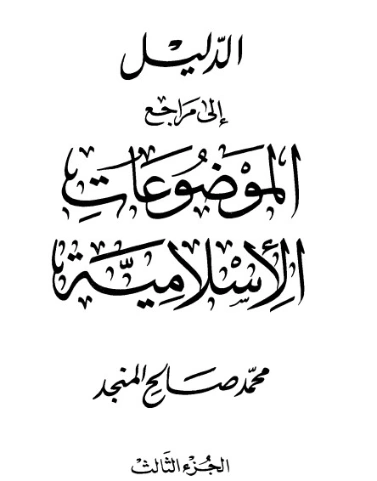 الدّليل
إلى مراجع
الموَضُوعَاتِ
الإِسْلاميَّة
محمّد صَالح المنجد
الجُزء الثَالث